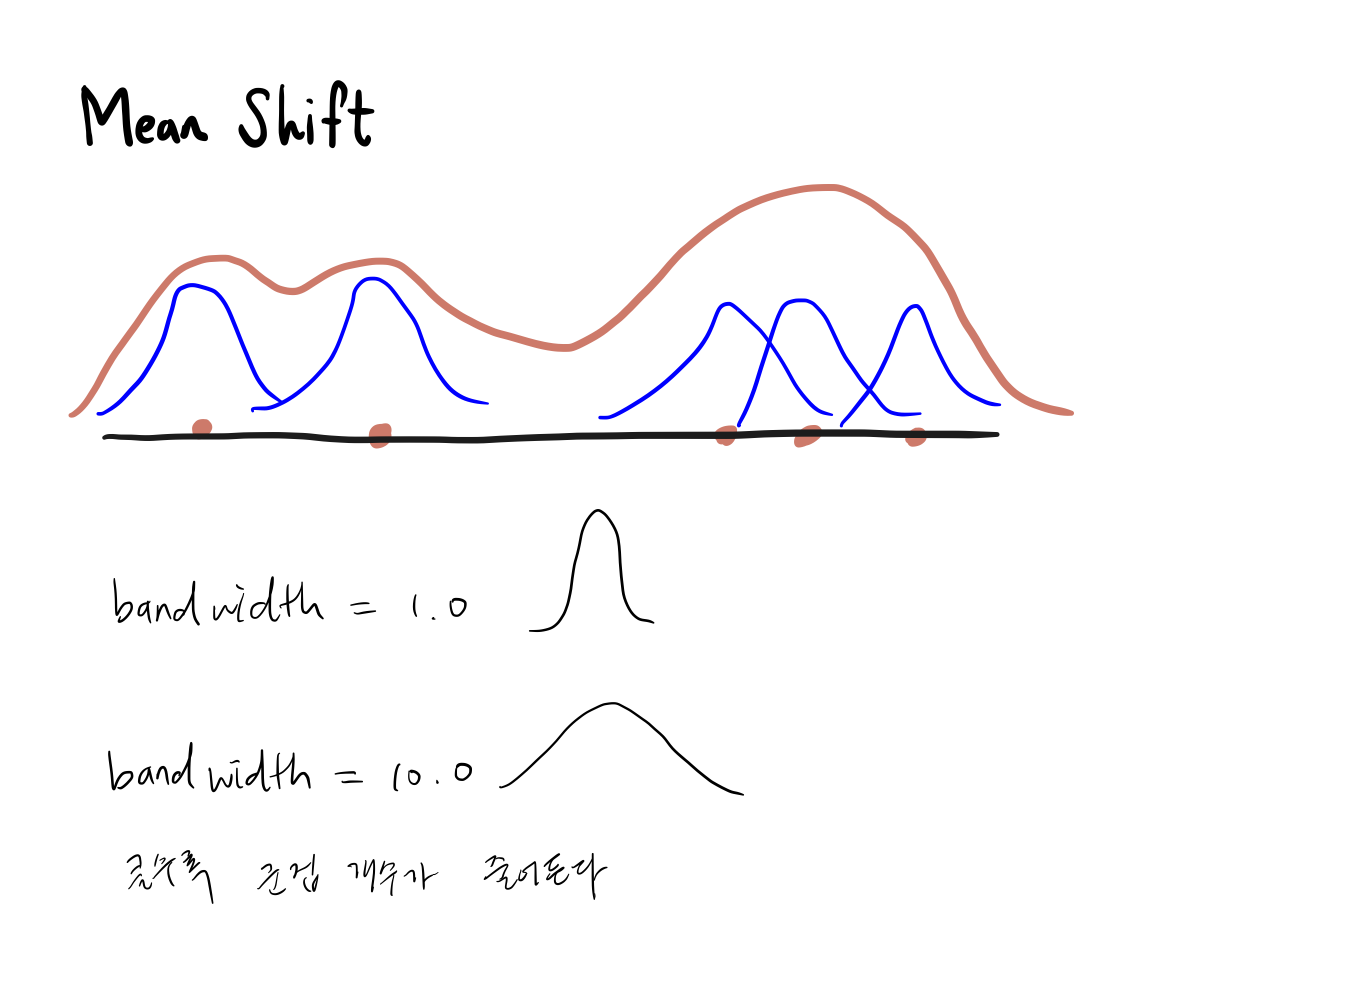 Mean Shift
bandwidth = 1.0
bandwidth = 10.0
클수록 군집 개수가 줄어든다